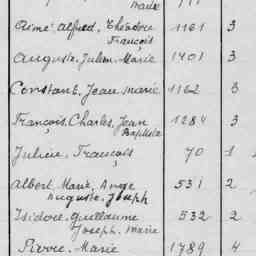 Marie 111
Aimé Alfred, Théodore 1161 3
François
Auguste, Julien Marie 1401 3
Constant, Jean Marie 1162 3
François, Charles, Jean 1284 3
Baptiste
Julien, François 70 1
Albert, Marie, Ange 531 2
Auguste, Joseph
Isidore, Guillaume 532 2
Joseph, Marie
Pierre, Marie 1789 4